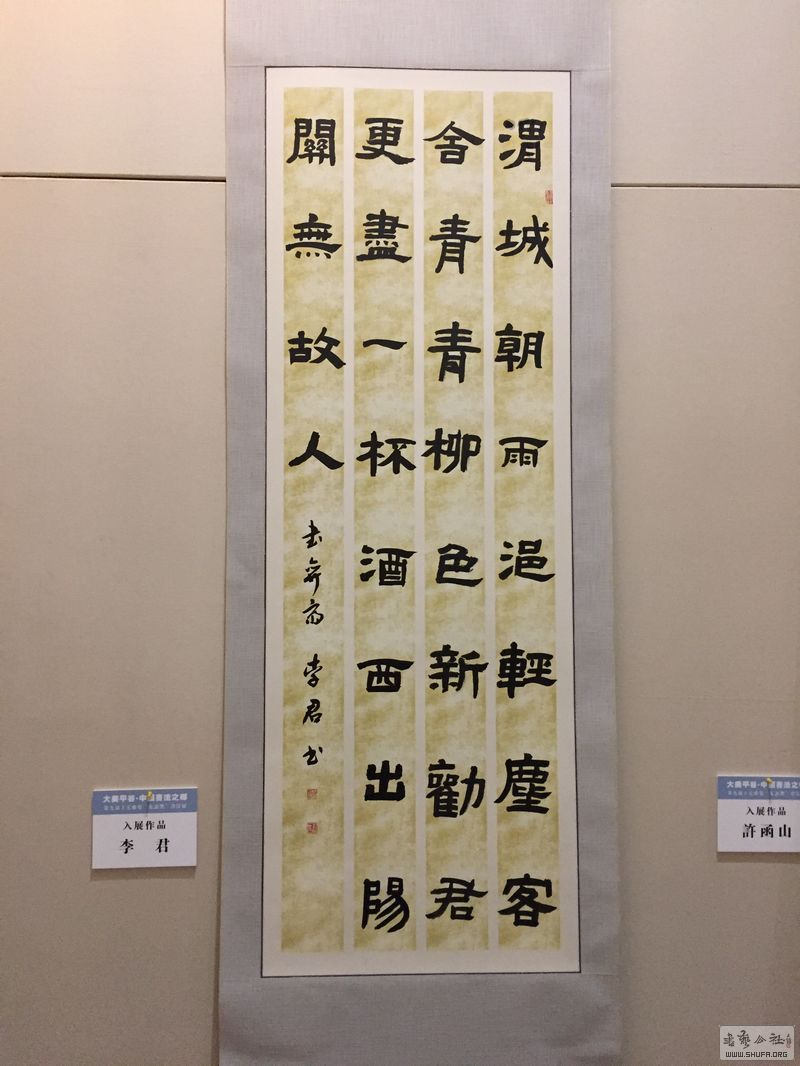 渭城朝雨浥輕塵客
舍青青柳色新勸君
更盡一杯酒西出陽
關無故人
李君书
大美平谷·中國書法之鄉
入展作品
李 君
大美平谷·中國書法之鄉
入展作品
許函山
WWW.SHUFA.ORG